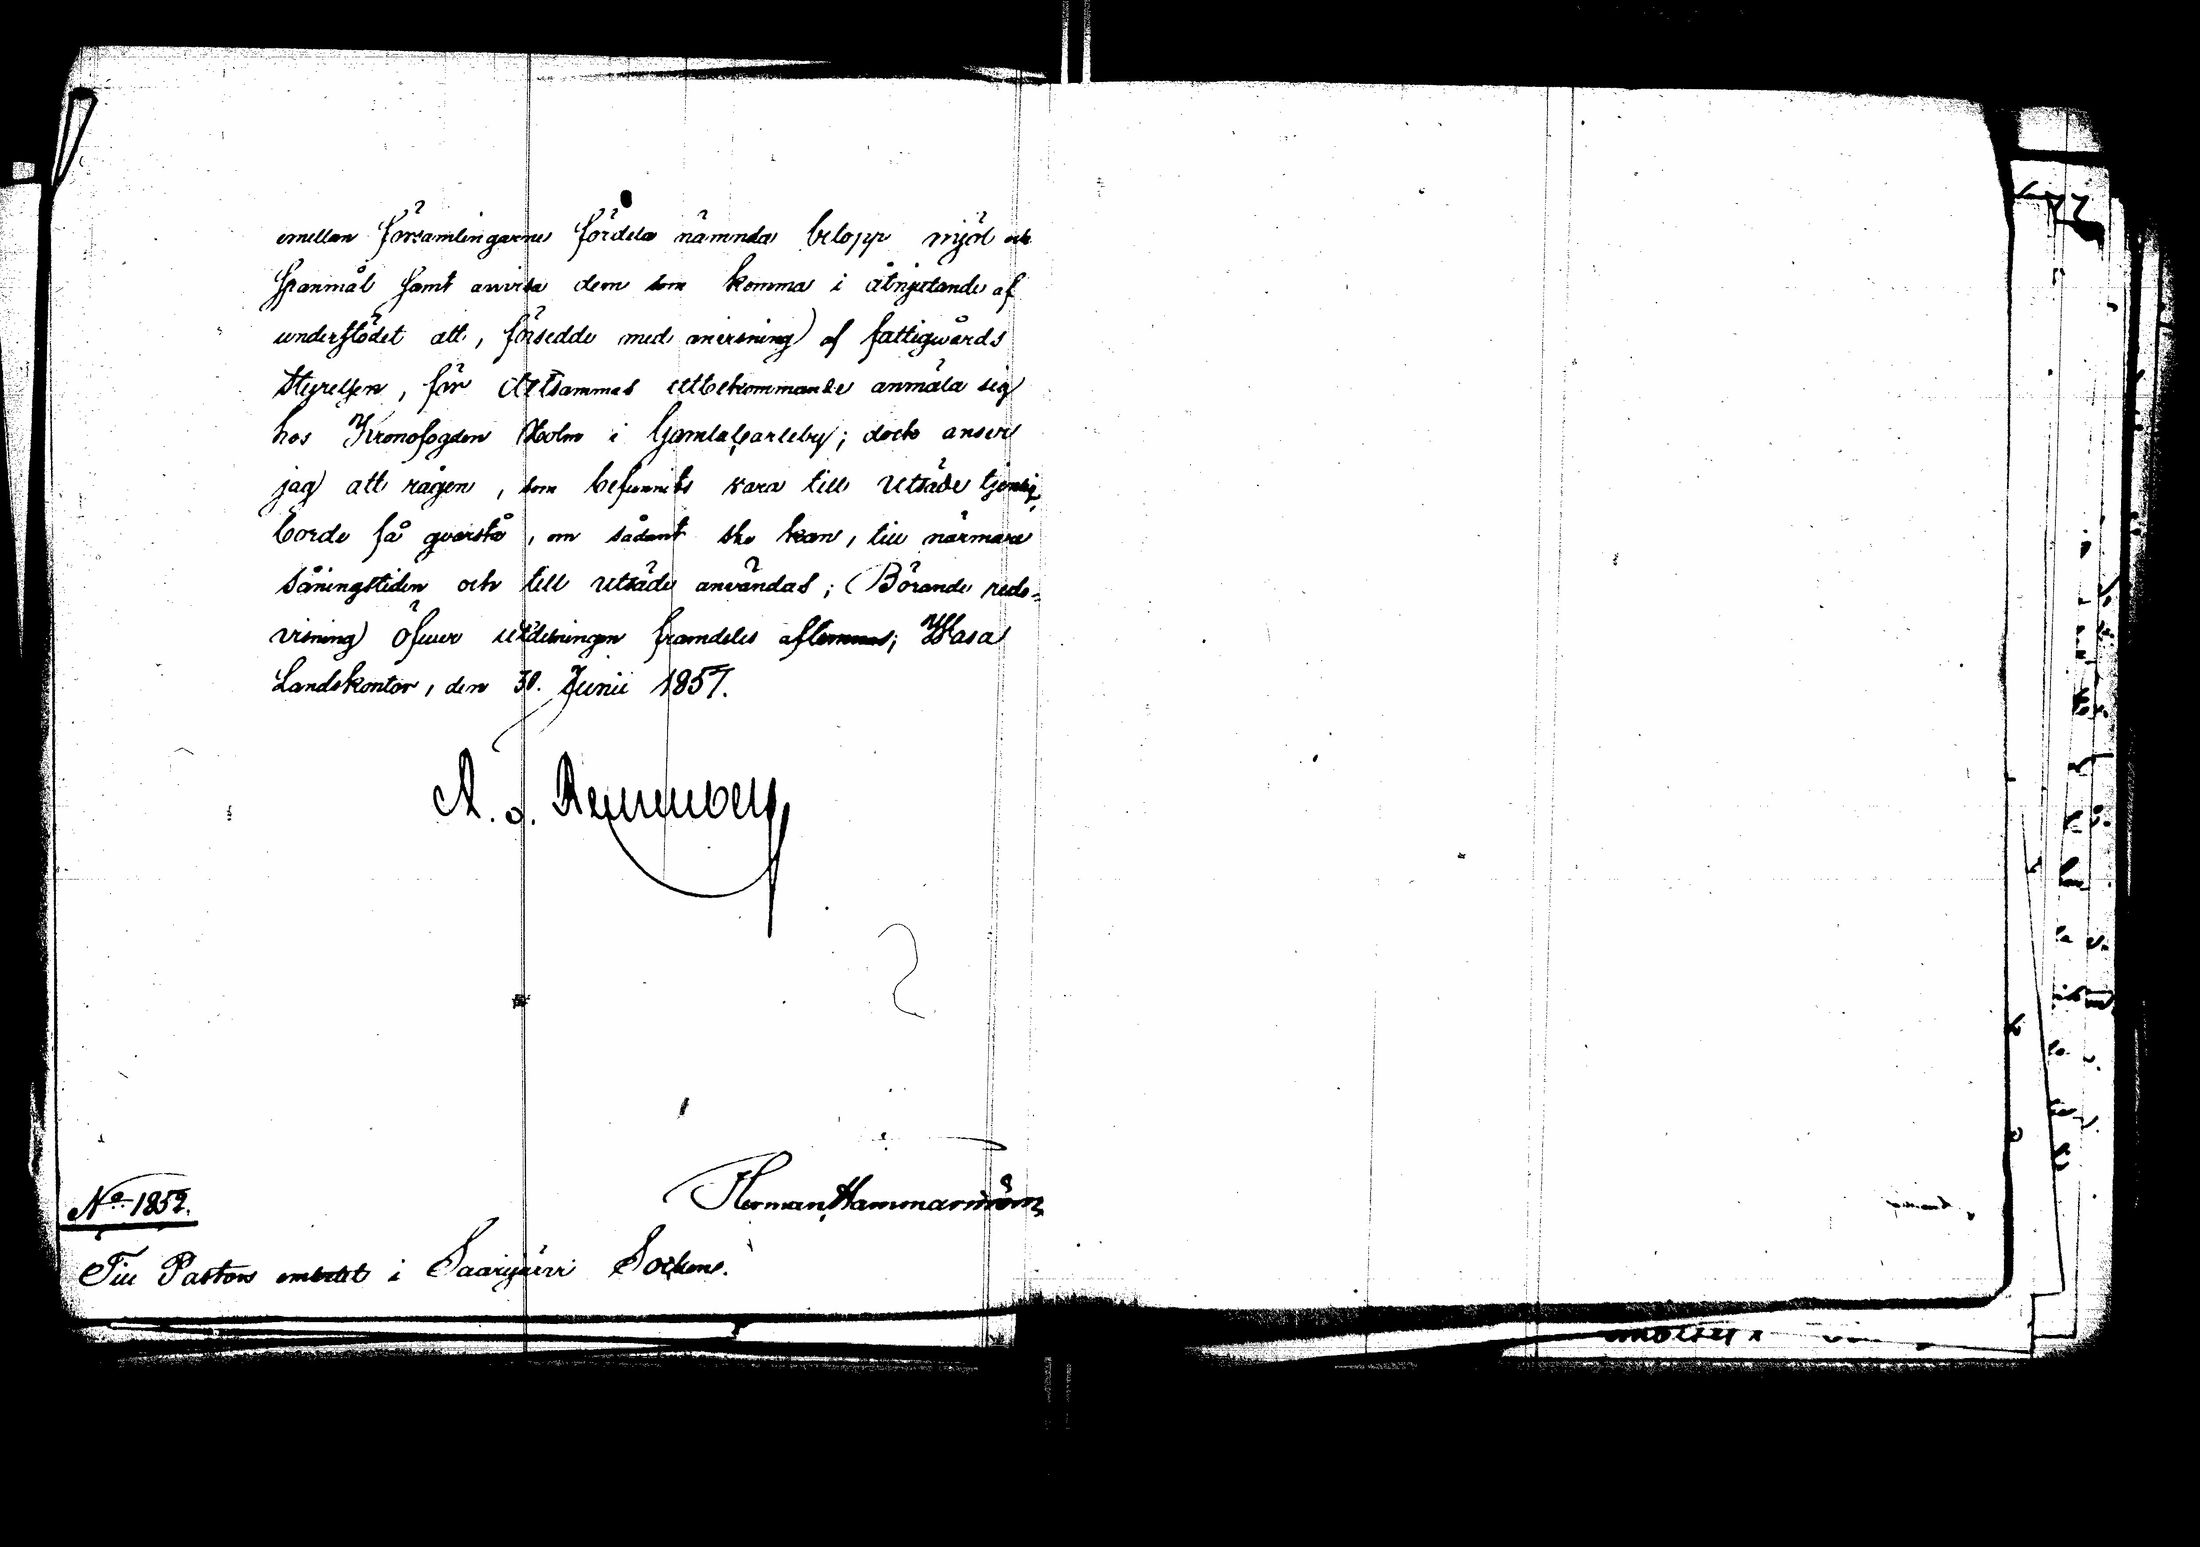 emellan församlingarne fördela nämnda belopp mjöl och
spanmål samt anvisa dem som komma i åtnjutande af
understödet att, försedde med anvisning af fattigvårds
styrelsen, för detsammas utbekommande anmäla sig
hos Kronofogden Holm i Gamlakarleby; dock anser
jag att rågen, som befunnits vara till utsäde tjenlig,
borde få qvarstå, om sådant ske kan, till närmare
såningstiden och till utsäde användas; Börande redo-
visning öfver utdelningen framdeles aflemnas; Wasa
Landskontor, den 30. Junii 1857.
Herman Hammarström
No 1852.
Till Pastors embetet i Saarijärvi Socken.